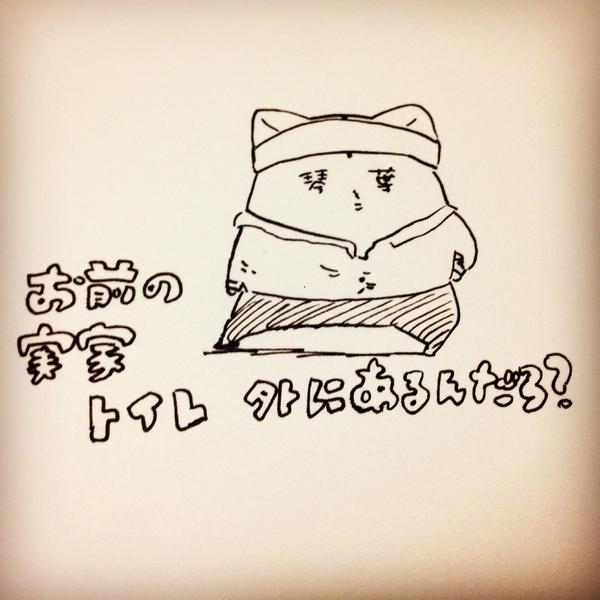 琴 葉
お前の
実家
トイレ 外にあるんだろ?